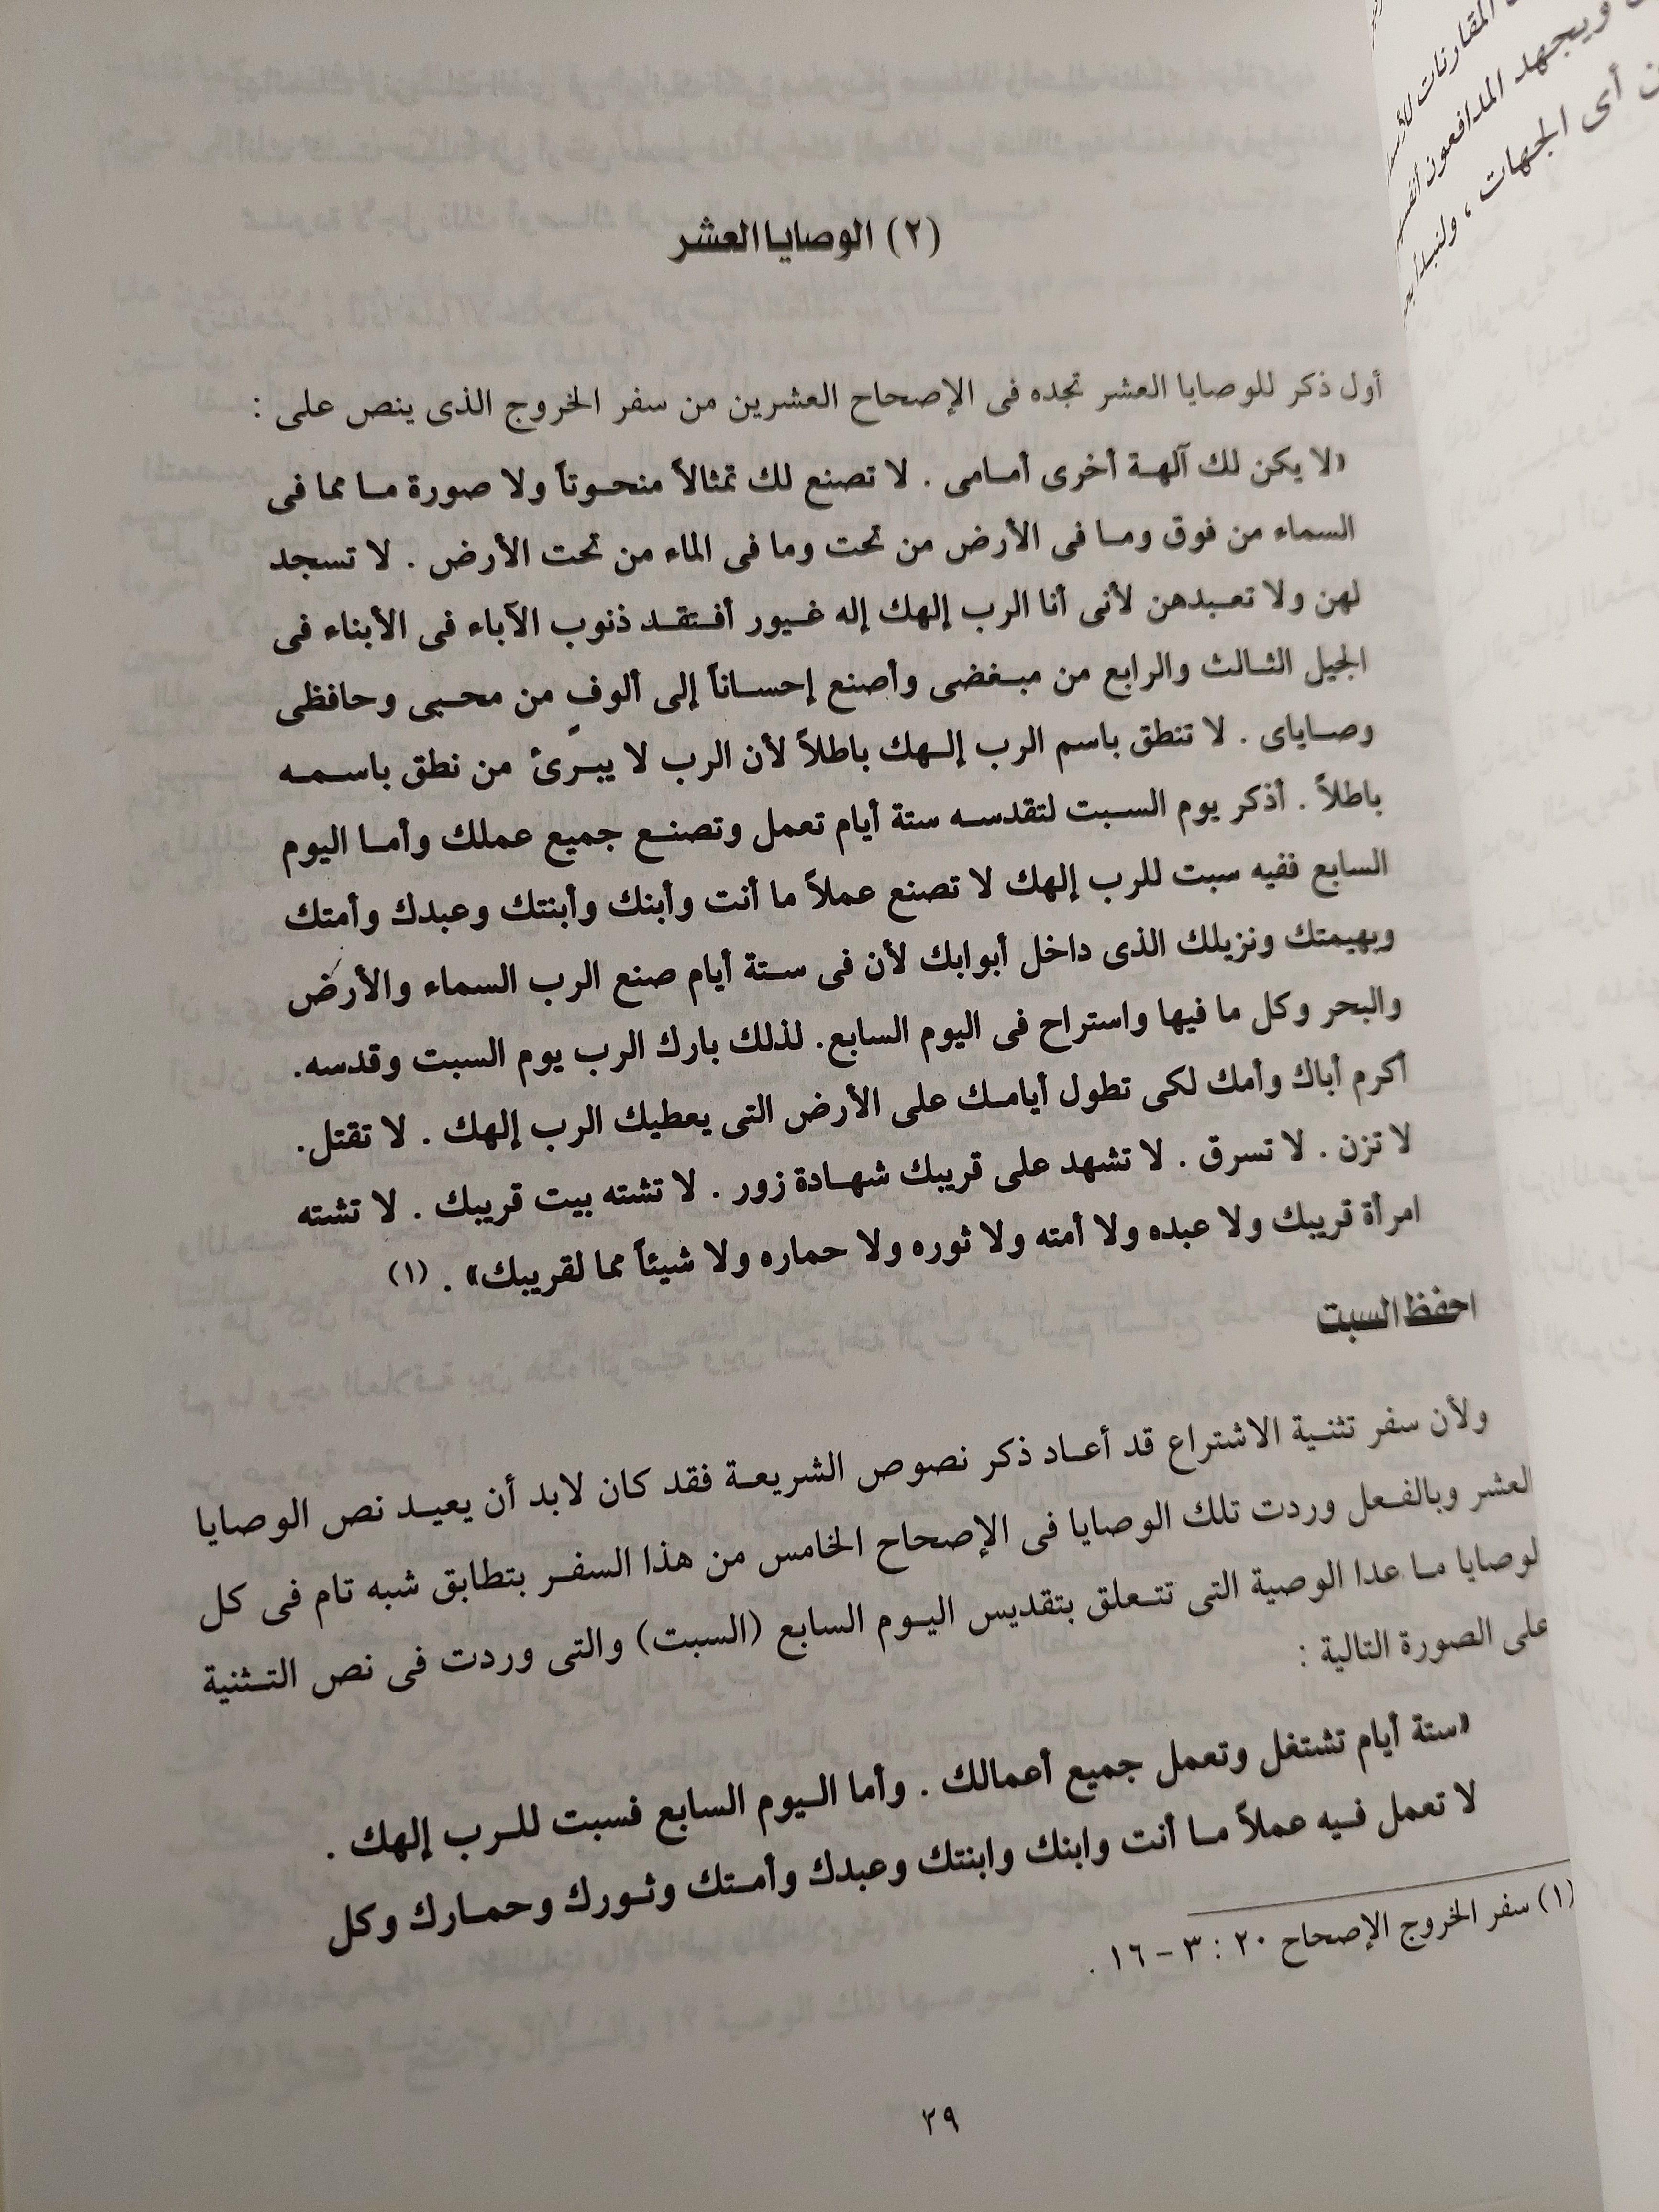 (٢) الوصايا العشر
أول ذكر للوصايا العشر تجده فى الإصحاح العشرين من سفر الخروج الذى ينص على :
«لا يكن لك آلهة أخرى أمامى . لا تصنع لك تمثالاً منحوتاً ولا صورة ما مما فى
السماء من فوق وما فى الأرض من تحت وما فى الماء من تحت الأرض . لا تسجد
لهن ولا تعبدهن لأنى أنا الرب إلهك إله غيور أفتقد ذنوب الآباء فى الأبناء فى
الجيل الثالث والرابع من مبغضى وأصنع إحساناً إلى ألوفٍ من محبى وحافظى
وصاياى . لا تنطق باسم الرب إلهك باطلاً لأن الرب لا يبرئ من نطق باسمه
باطلاً . أذكر يوم السبت لتقدسه ستة أيام تعمل وتصنع جميع عملك وأما اليوم
السابع ففيه سبت للرب إلهك لا تصنع عملاً ما أنت وأبنك وأبنتك وعبدك وأمتك
وبهيمتك ونزيلك الذى داخل أبوابك لأن فى ستة أيام صنع الرب السماء والأرض
والبحر وكل ما فيها واستراح فى اليوم السابع. لذلك بارك الرب يوم السبت وقدسه.
أكرم أباك وأمك لكى تطول أيامك على الأرض التى يعطيك الرب إلهك . لا تقتل.
لا تزن . لا تسرق . لا تشهد على قريبك شهادة زور . لا تشته بيت قريبك . لا تشته
امرأة قريبك ولا عبده ولا أمته ولا ثوره ولا حماره ولا شيئاً مما لقريبك» . (١)
احفظ السبت
ولأن سفر تثنية الاشتراع قد أعاد ذكر نصوص الشريعة فقد كان لابد أن يعيد نص الوصايا
العشر وبالفعل وردت تلك الوصايا فى الإصحاح الخامس من هذا السفر بتطابق شبه تام فى كل
لوصايا ما عدا الوصية التى تتعلق بتقديس اليوم السابع (السبت) والتى وردت فى نص التثنية
على الصورة التالية :
«ستة أيام تشتغل وتعمل جميع أعمالك . وأما اليوم السابع فسبت للرب إلهك .
لا تعمل فيه عملاً ما أنت وابنك وابنتك وعبدك وأمتك وثورك وحمارك وكل
(١) سفر الخروج الإصحاح ٢٠ : ٣ - ١٦ .
٢٩
المقارنات للأسـ
ويجهد المدافعون أنفسـ
أى الجهات ، ولنبدأ